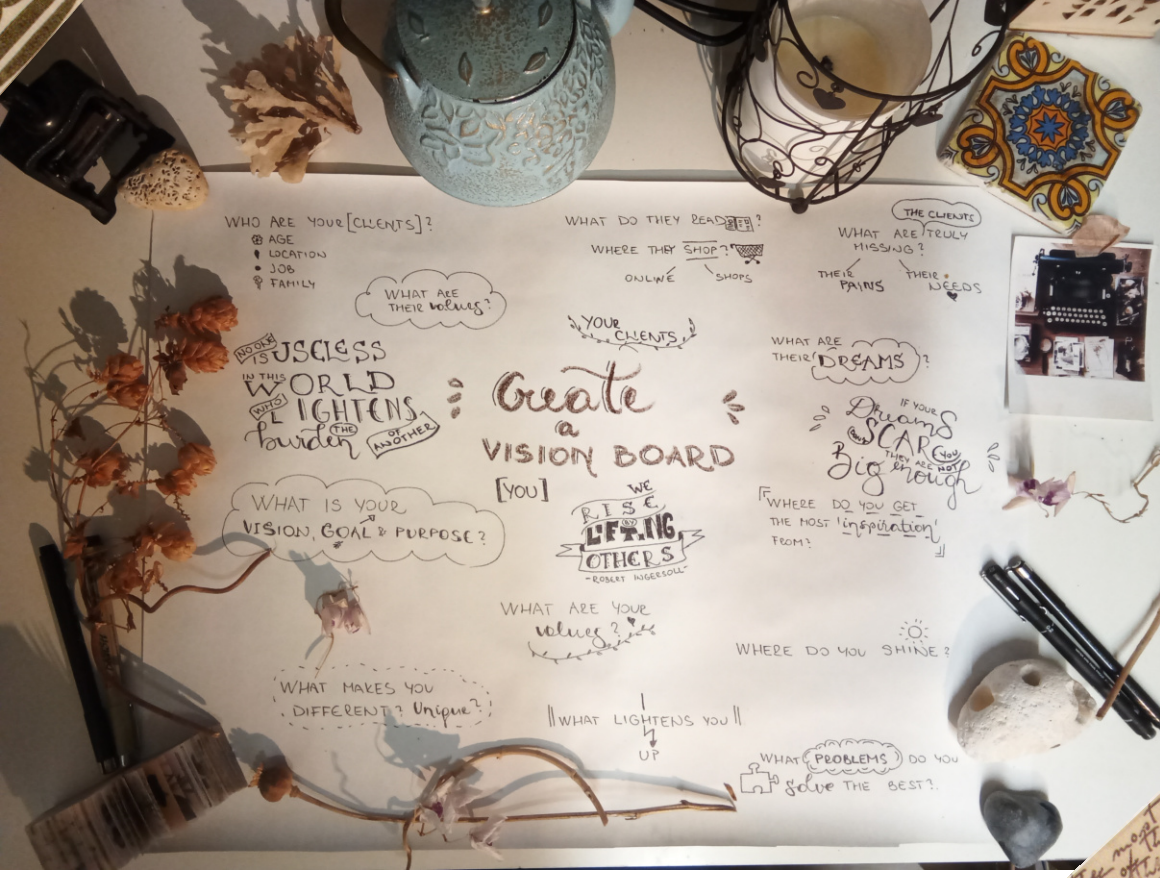 WHO ARE YOUR [CLIENTS]?
AGE
LOCATION
JOB
FAMILY
WHAT ARE
THEIR values?
WHAT DO THEY READ ?
WHERE THEY SHOP?
ONLINE SHOPS
THE CLIENTS
WHAT ARE TRULY
MISSING?
THEIR PAINS
THEIR NEEDS
YOUR
CLIENTS
WHAT ARE
THEIR DREAMS ?
NO ONE
IS USELESS
IN THIS
WORLD
WHO
LIGHTENS
THE
burden OF
ANOTHER
Create
a
VISION BOARD
[YOU]
IF YOUR
Dreams
SCARE YOU
THEY ARE NOT
Big enough
WHAT IS YOUR
VISION, GOAL & PURPOSE?
WE
RISE
BY
LIFTING
OTHERS
-ROBERT INGERSOLL-
WHERE DO YOU GET
THE MOST 'inspiration'
FROM?
WHAT ARE YOUR
values?
WHERE DO YOU SHINE?
WHAT MAKES YOU
DIFFERENT? Unique?
WHAT LIGHTENS YOU
UP
WHAT PROBLEMS DO YOU
Solve THE BEST?